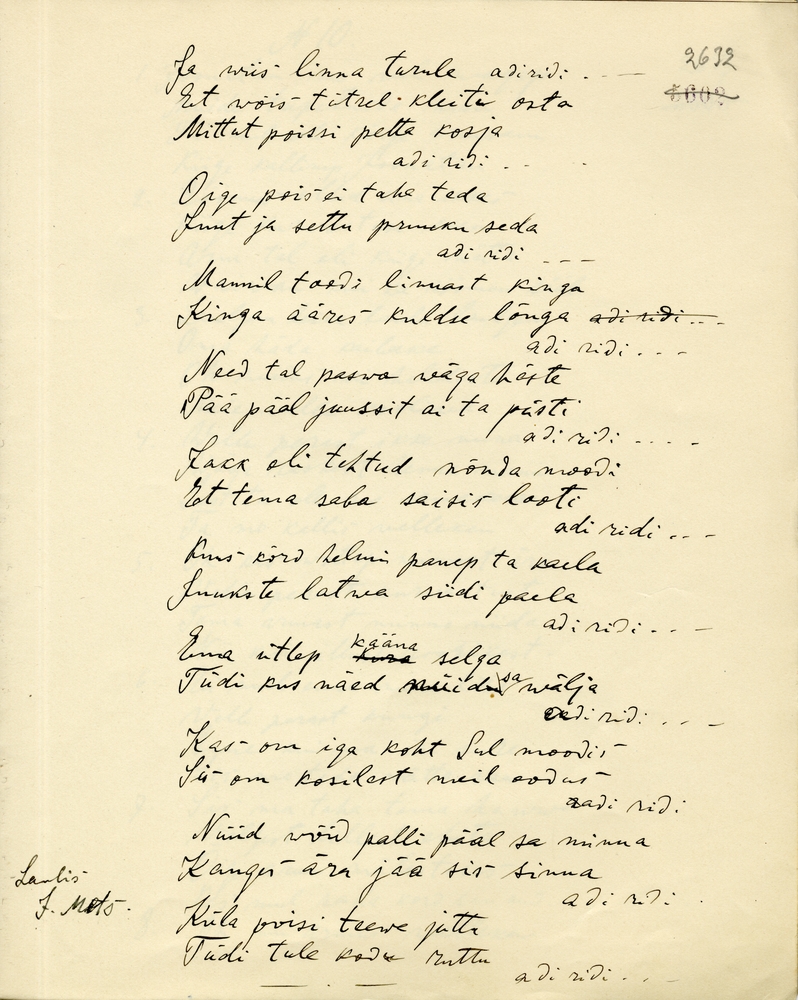 2632
Ja wiis linna turule adiridi . —
Et wõis tütrel kleiti osta
Mittut poissi petta kosja
adi ridi . .
Õige pois ei taha teda
Juut ja settu pruuku seda
adi ridi - - -
Mannil toodi linnast kinga
Kinga ääres kuldse lõnga adi ridi . . -
adi ridi . . -
Need tal paswa wäga häste
Pää pääl juussit ai ta püsti
adi ridi - - - -
Jakk oli tehtud nõnda moodi
Et tema saba saisis looti
adi ridi . . -
Kuus kõrd helmi panep ta kaela
Juukste latwa siidi paela
adi ridi . . -
Ema ütlep kääna selga
Tüdi kus näed sa wälja
adi ridi . . -
Kas om iga koht Sul moodis
Sis om kosilast meil oodus
adi ridi
Nüüd wõid palli pääl sa minna
Kanges ära jää sis sinna
adi ridi .
Küla poisi teewe juttu
Tüdi tule kodu ruttu
adi ridi . . -
Laulis
J. Mets.